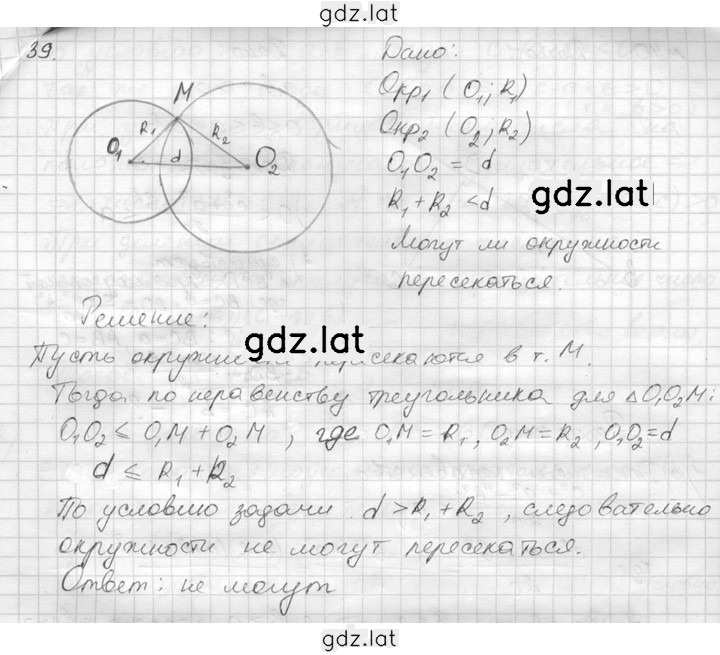 gdz.lat
39.
Дано:
Окр₁ (O₁; R₁)
Окр₂ (O₂; R₂)
O₁O₂ = d
R₁ + R₂ < d
Могут ли окружности
пересекаться.
M
R₁
R₂
O₁
d
O₂
gdz.lat
Решение:
gdz.lat
Пусть пересекаются в т. M.
Тогда по неравенству треугольника для △O₁O₂M:
O₁O₂ ≤ O₁M + O₂M, где O₁M = R₁, O₂M = R₂, O₁O₂ = d
d ≤ R₁ + R₂
По условию задачи d > R₁ + R₂, следовательно
окружности не могут пересекаться.
Ответ: не могут
gdz.lat